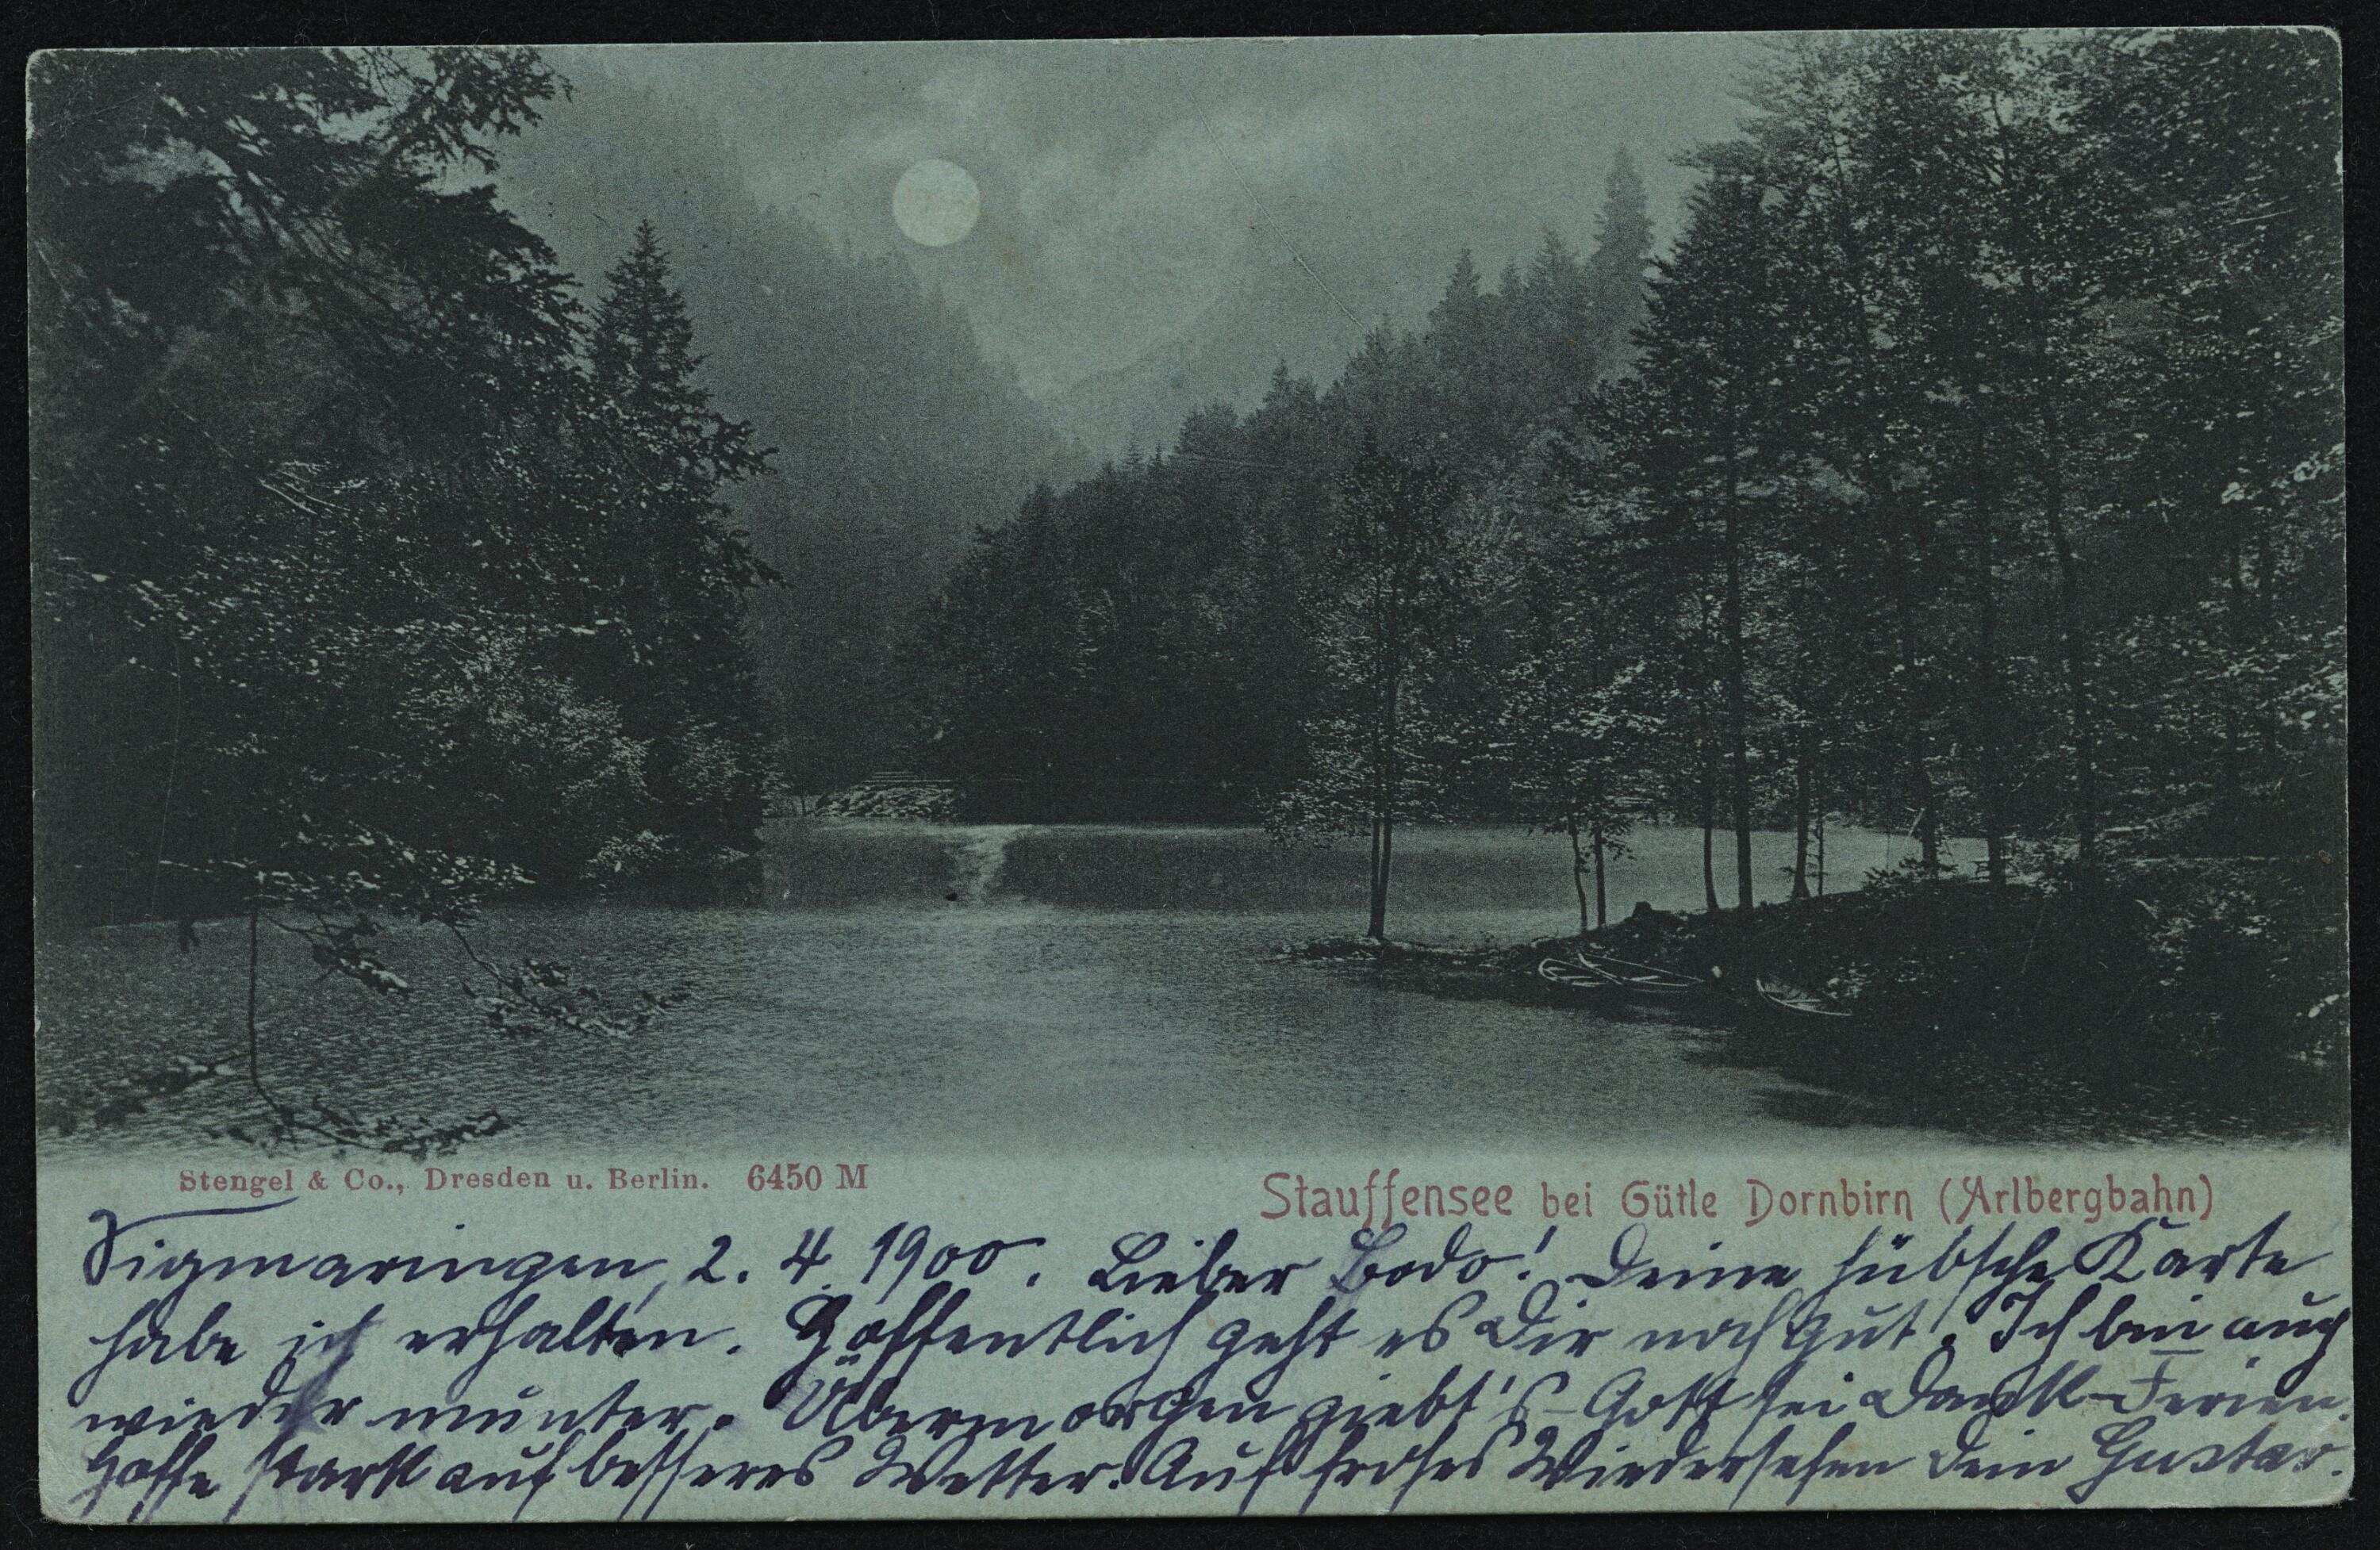 Stengel & Co., Dresden u. Berlin. 6450 M
Stauffensee bei Gütle Dornbirn (Arlbergbahn)
Sigmaringen, 2. 4. 1900. Lieber Bodo! Deine hübsche Karte
habe ich erhalten. Hoffentlich geht es Dir noch gut. Ich bin auch
wieder munter. Übermorgen giebt's – Gott sei Dank – Ferien.
Hoffe stark auf besseres Wetter. Auf frohes Wiedersehen Dein Gustav.